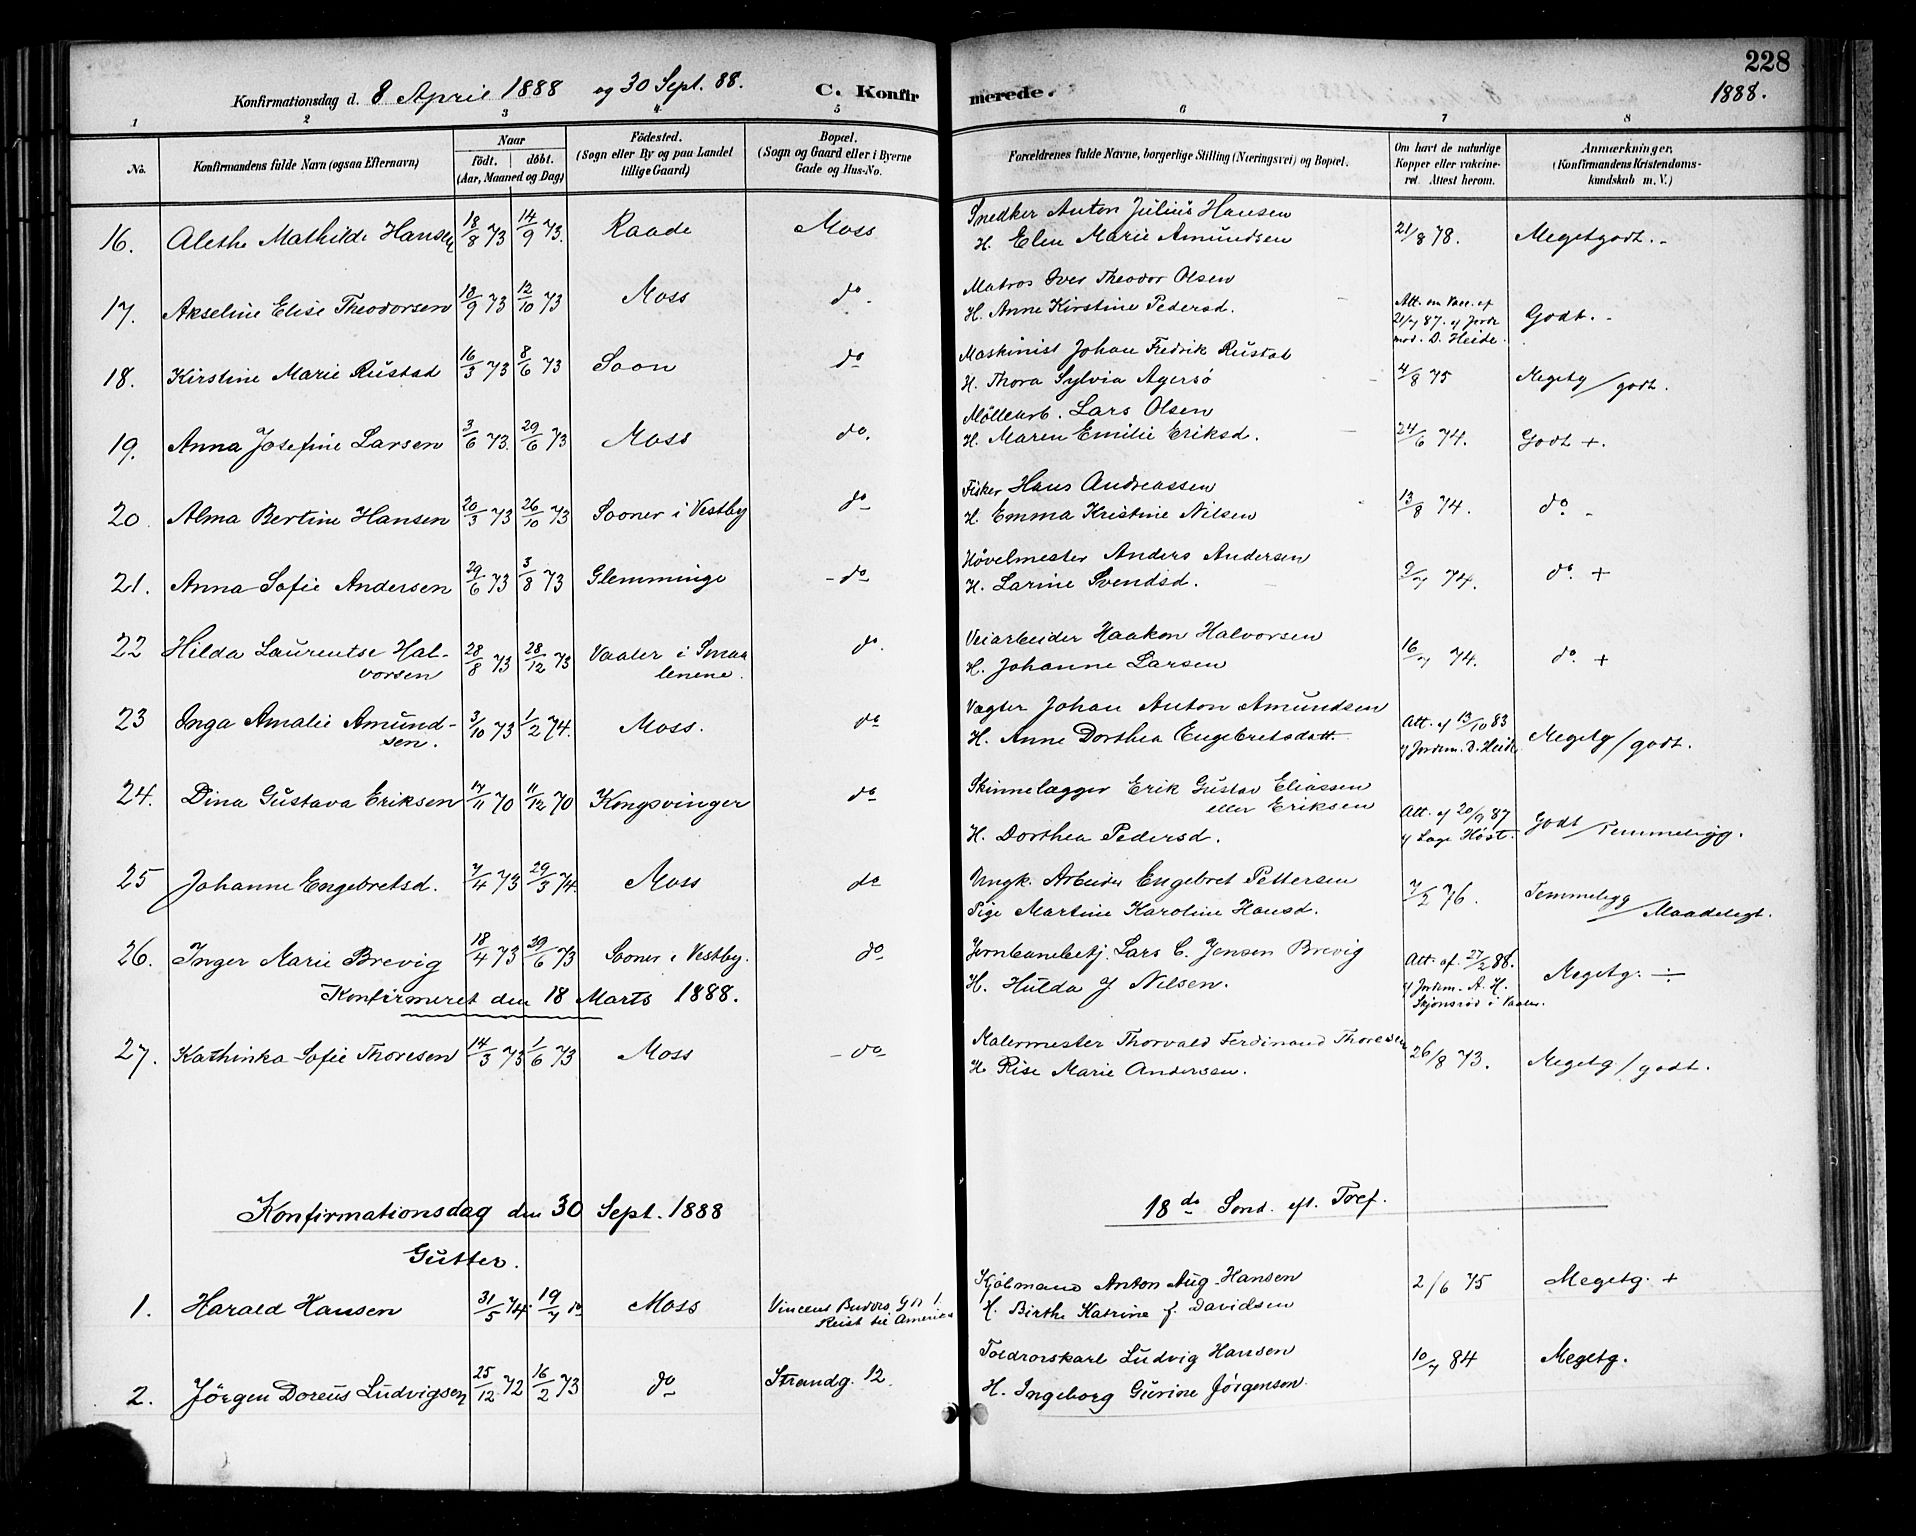 228
Konfirmationsdag d. 8 April 1888 og 30 Sept. 88. C. Konfirmerede. 1888.
1 2 3 4 5 6 7 8
No. Konfirmandens fulde Navn (ogsaa Efternavn)
Naar
födt. döbt.
(Aar, Maaned og Dag)
Födested.
(Sogn eller By og paa Landet
tillige Gaard)
Bopæl.
(Sogn og Gaard eller i Byerne
Gade og Hus-No.
Forældrenes fulde Navne, borgerlige Stilling (Næringsvei) og Bopæl.
Om havt de naturlige
Kopper eller vakcineret.
Attest herom.
Anmærkninger,
(Konfirmandens Kristendomskundskab
m. V.)
16. Alethe Mathilde Hansen 18/8 73 14/9 73. Raade Moss Snedker Anton Julius Hansen
H. Elen Marie Amundsen 21/8 78. Megetgodt.
17. Akseline Elise Theodorsen 18/9 73 12/10 73 Moss do. Matros Iver Theodor Olsen
H. Anne Kirstine Pedersd. Att. om Vacc. af
21/7 87. v/ Jordemod. D. Heide. Godt.
18. Kirstine Marie Rustad 16/3 73 8/6 73 Soon do Maskinist Johan Fredrik Rustad
H. Thora Sylvia Agersö 4/8 75 Megetg/godt.
19. Anna Josefine Larsen 3/6 73. 29/6 73 Moss do. Møllearb. Lars Olsen
H. Maren Emilie Eriksd. 24/6 74. Godt +.
20. Alma Bertine Hansen 20/3 73 26/10 73 Sooner i Vestby do Fisker Hans Andreassen
H. Emma Kristine Nilsen 13/8 74. do. -
21. Anna Sofie Andersen 29/6 73 3/8 73 Glemminge - do Høvelmester Anders Andersen
H. Larine Svendsd. 9/7 74. do. +
22 Hilda Laurentse Halvorsen 28/8 73 28/12 73 Vaaler i Smaalenene. do. Veiarbeider Haakon Halvorsen
H. Johanne Larsen 16/7 74. do. +
23 Inga Amalie Amundsen. 3/10 73 1/2 74. Moss. do Vægter Johan Anton Amundsen
H. Anne Dorthea Engebretsdatt. Att. af 13/10 83
v/ Jordem. D. Heide Megetg/godt.
24. Dina Gustava Eriksen 17/11 70 11/12 70 Kongsvinger do Skinnelægger Erik Gustav Eliassen
eller Eriksen
H. Dorthea Pedersd. Att. af 20/9 87
v/ Læge Høst. Godt/Temmeligg.
25 Johanne Engebretsd. 7/4 73 29/3 74. Moss do Ungk. Arbeider Engebret Pettersen
Pige Martine Karoline Hansd. 7/2 76. Temmeligg/Maadeligt.
26. Inger Marie Brevig 18/4 73 29/6 73 Sooner i Vestby. do Jernbanebetj. Lars C. Jensen Brevig
H. Hulda J Nilsen. Att. af. 27/2 88.
v/ Jordem. A. H.
Skjonsröd i Vaaler. Megetg. ÷
Konfirmeret den 18 Marts 1888.
27. Kathinka Sofie Thoresen 14/3 73 1/6 73 Moss - do Malermester Thorvald Ferdinand Thoresen
H Rise Marie Andersen. 26/8 73. Megetg/godt.
Konfirmationsdag den 30 Sept. 1888 18de Sønd. eft. Tref.
Gutter.
1. Harald Hansen 31/5 74. 19/7 do Moss Vincens Buders. G No 1.
Reist til Amerika Kjölmand Anton Aug. Hansen
H. Birthe Katrine f. Davidsen 2/6 75 Megetg. +
2. Jörgen Doreus Ludvigsen 25/12 72 16/2 73 do Strandg. 12. Toldrorskarl Ludvig Hansen
H. Ingeborg Gurine Jørgensen. 10/7 84 Megetg.